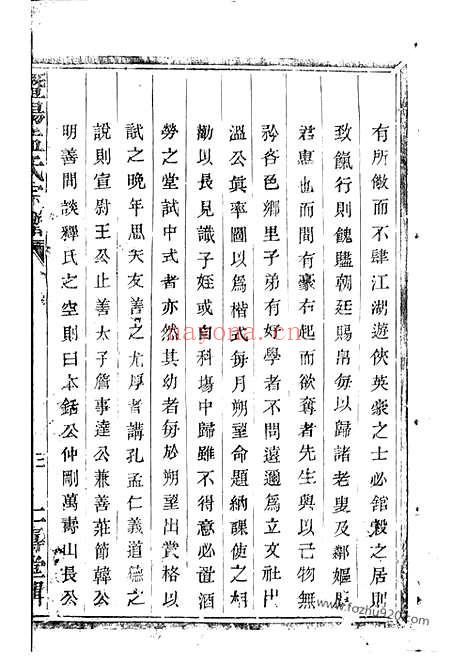 有所儆而不肆江湖遊俠英豪之士必舘穀之居則
致餼行則餽贐朝廷賜帛每以歸諸老叟及鄰嫗曰
君惠也而間有豪右起而欲奪者先生與以己物無
吝色鄉里子弟有好學者不問遠邇為立文社出
溫公眞率圖以為楷式每月朔望命題納課使之相
勸以長見識子姪或自科塲中歸雖不得意必置酒
勞之堂試中式者亦然其幼者每於朔望出賞格以
試之晚年思天友善之尤厚者講孔孟仁義道德之
說則宣尉王公止善太子詹事達公兼善莊節韓公
明善間談釋氏之空則曰本銛公仲剛萬壽山長公
暨陽孟氏宗譜
卷
三
nayona.cn
www.fozhu920.com